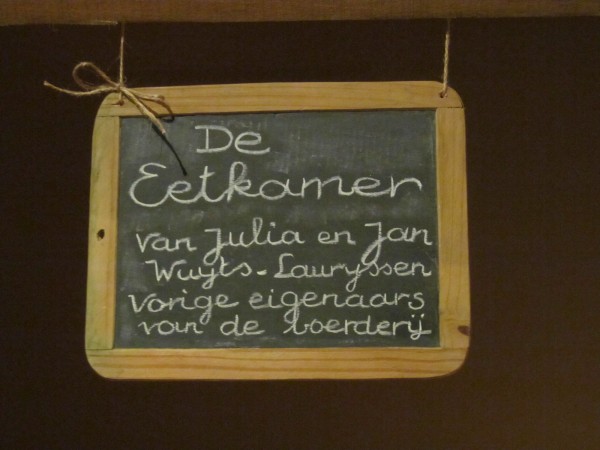 De
Eetkamer
van Julia en Jan
Wuyts-Lauryssen
Vorige eigenaars
van de boerderij